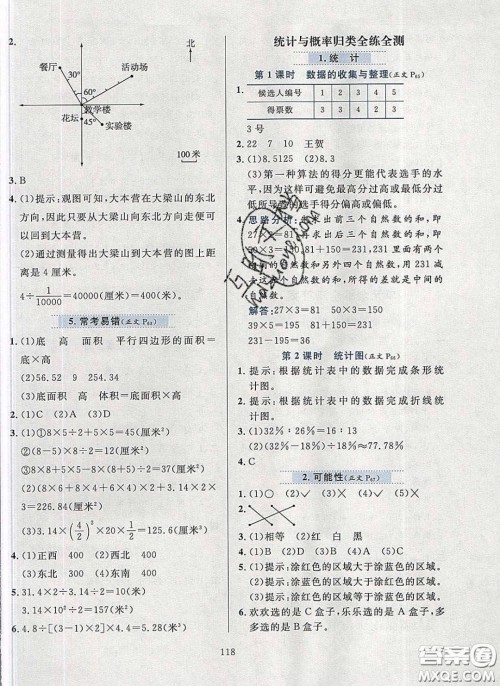 2.
北
餐厅
活动场
30°
60°
教学楼
花坛
45°
实验楼
100米
3. B
4. (1)提示:观图可知,大本营在大梁山的东北
方向,因此要从大梁山向东北方向走便可
以回到大本营。
(2)通过测量得出大梁山与大本营的图上距
离是4厘米。
4÷1/10000=40000(厘米)=400(米)。
5. 常考易错(正文P63)
1. (1)底 高 面积 平行四边形的面积=
底×高
(2)56.52 9 254.34
(3)底面积 高 体积=底面积×高
2. (1)C (2)A (3)D
3. (1)①8×5÷2+5×2=45(厘米)
②8×5÷2+8×5×2=100(厘米²)
(2)8+3.14×8÷2+5×2=30.56(厘米)
3.14×8×5+3.14×(8÷2)²×2
=226.84(厘米²)
(3)3.14×(4/2)²×20×1/2=125.6(厘米³)
4. (1)正西 400 (2)西北 400
(3)东北 300 (4)东南 300
5. 31.4×2÷3.14÷2=10(厘米)
3.14×10²÷2=157(厘米²)
6. 4.8÷[3.14×(4÷2)²]+4=5.28(厘米)
统计与概率归类全练全测
1. 统 计
第1课时 数据的收集与整理(正文P65)
1. 候选人编号 1 2 3 4 5
得票数 3 4 6 5 2
3号
2. 22 7 10 王贺
3. (1)8.5125 (2)8.3
(3)第一种算法的得分更能代表选手的水
平,因为这样可避免最高分过高或最低分过
低所导致的选手得分偏高或偏低。
4. 思路分析:
解答:27×3=81 50×3=150
39×5=195 81+150=231
231-195=36
第2课时 统计图(正文P66)
1. 提示:根据统计表中的数据完成条形统
计图。
2. 提示:根据统计表中的数据完成折线统
计图。
3. (1)32% 26% (2)14÷18≈77.78%
4. C
2. 可能性(正文P67)
1. (1)○ (2)√ (3)× (4)√
2.
3. (1)相等 (2)红 白 黑
4. (1)× (2)× (3)√ (4)√
5. (1)提示:涂红色的区域大于涂蓝色的区域。
(2)提示:涂蓝色的区域大于涂红色的区域。
6. 欢欢选的是C盒子,乐乐选的是A盒子,多
多选的是B盒子。
118